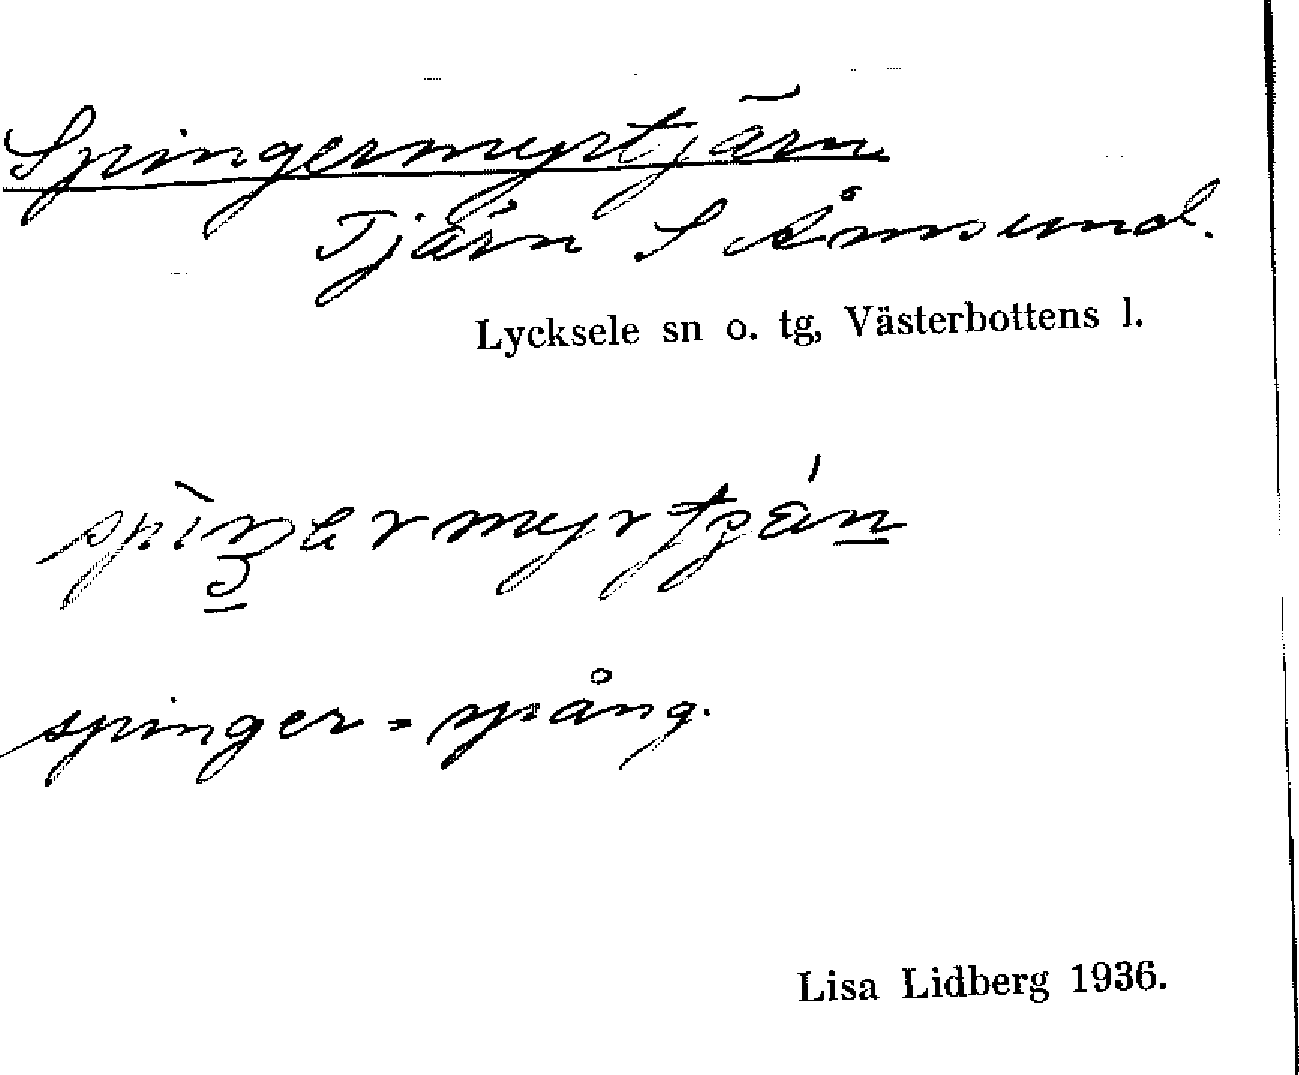 Spingermyrtjärn
Tjärn S Åmsund.
Lycksele sn o. tg, Västerbottens l.
spinger = spång.
Lisa Lidberg 1936.